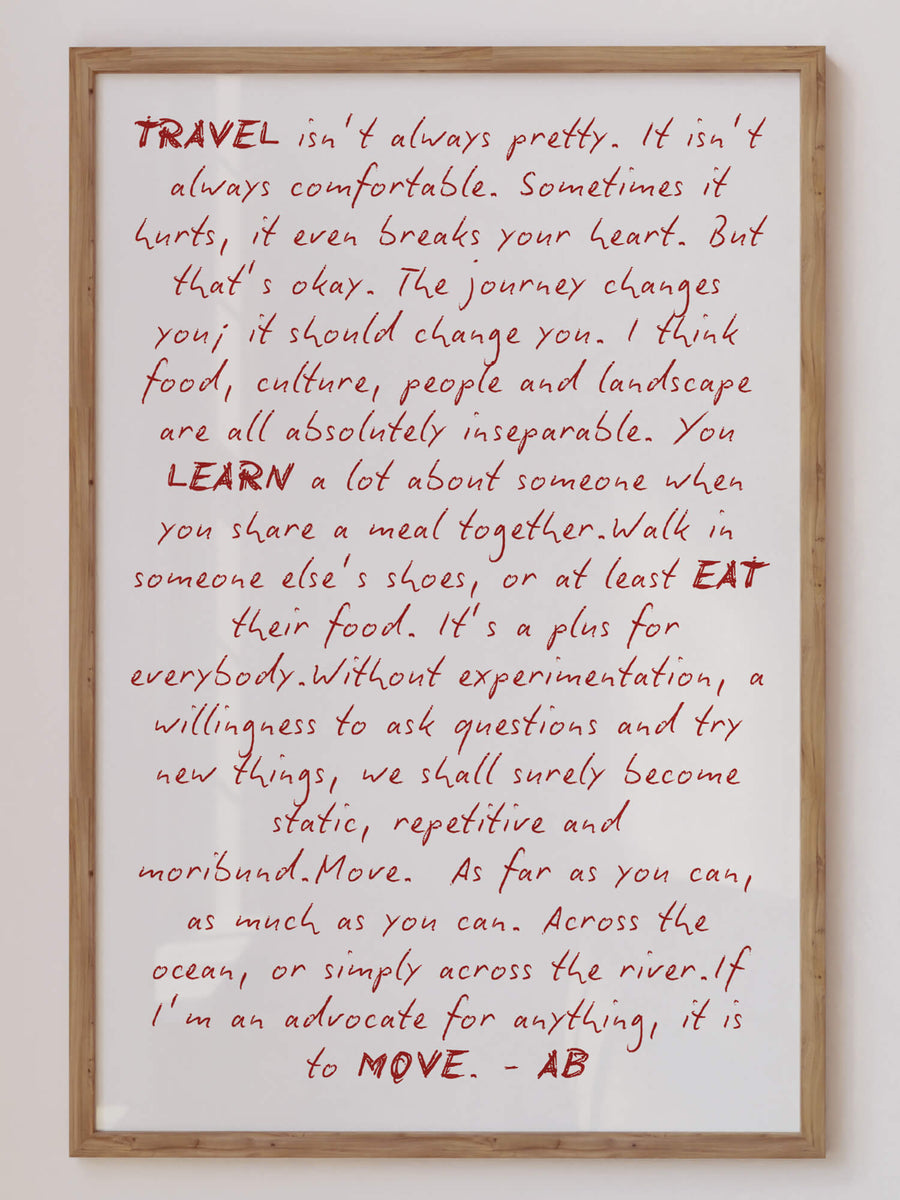 TRAVEL isn't always pretty. It isn't
always comfortable. Sometimes it
hurts, it even breaks your heart. But
that's okay. The journey changes
you; it should change you. I think
food, culture, people and landscape
are all absolutely inseparable. You
LEARN a lot about someone when
you share a meal together.Walk in
someone else's shoes, or at least EAT
their food. It's a plus for
everybody.Without experimentation, a
willingness to ask questions and try
new things, we shall surely become
static, repetitive and
moribund.Move.  As far as you can,
as much as you can. Across the
ocean, or simply across the river.If
I'm an advocate for anything, it is
to MOVE. - AB